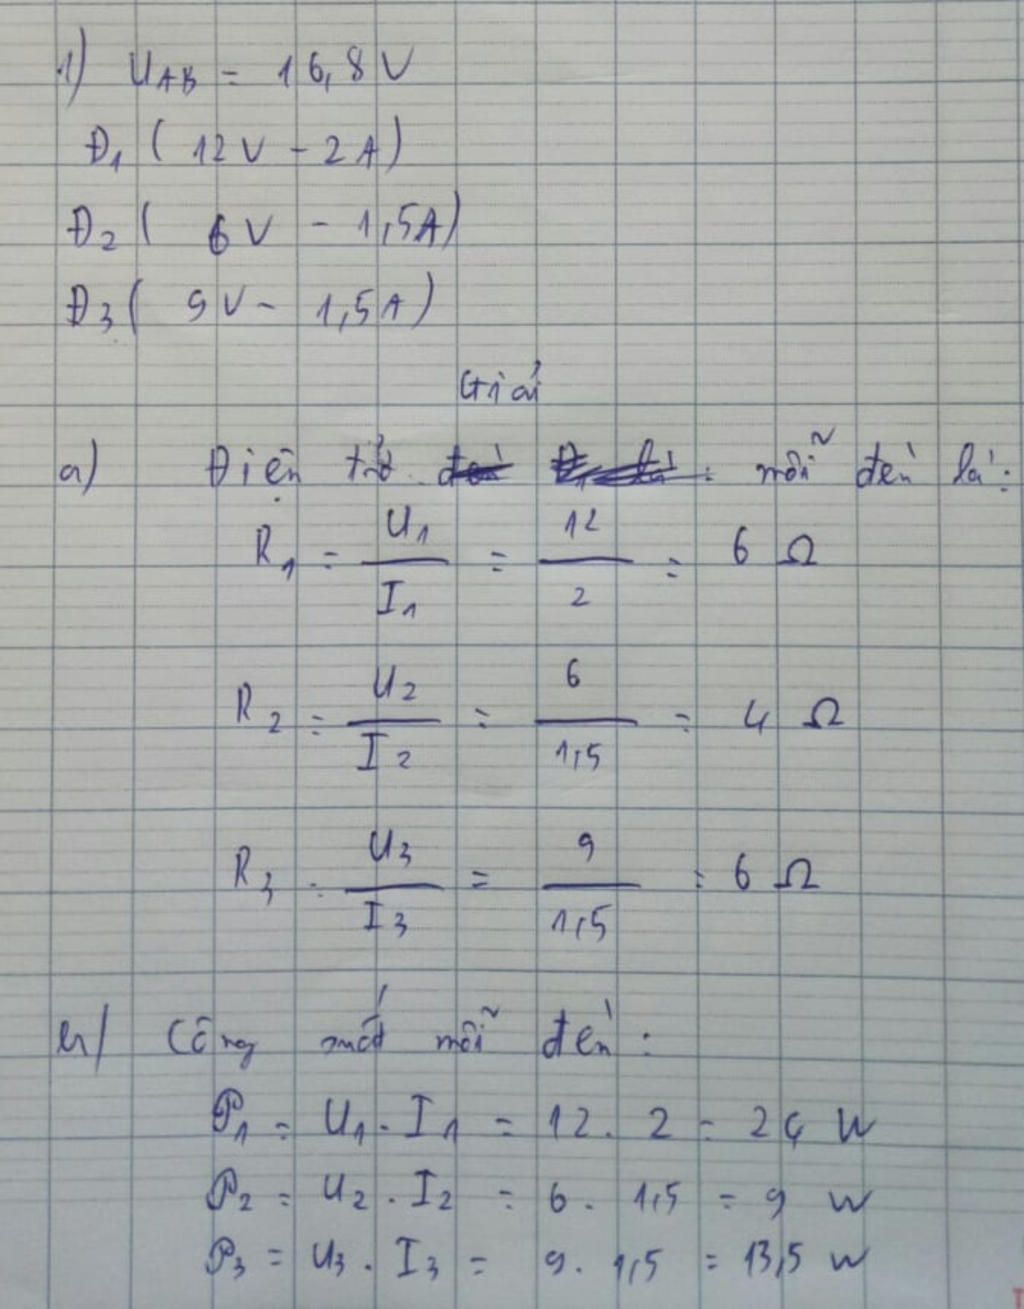 1) UAB = 16,8 V
Đ1 ( 12V - 2A)
Đ2 ( 6V - 1,5A)
Đ3 ( 9V - 1,5A)
Giải
a) Điện trở mỗi đèn là:
R1 = U1 / I1 = 12 / 2 = 6 Ω
R2 = U2 / I2 = 6 / 1,5 = 4 Ω
R3 = U3 / I3 = 9 / 1,5 = 6 Ω
b) Công suất mỗi đèn:
P1 = U1 . I1 = 12 . 2 = 24 W
P2 = U2 . I2 = 6 . 1,5 = 9 W
P3 = U3 . I3 = 9 . 1,5 = 13,5 W